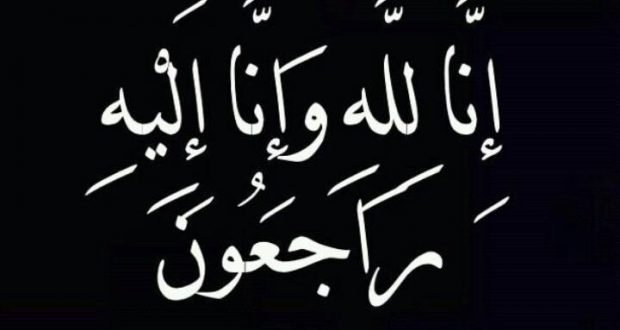 إِنَّا لله وَإِنَّا إِلَيْهِ
رَاَجَعُونَ